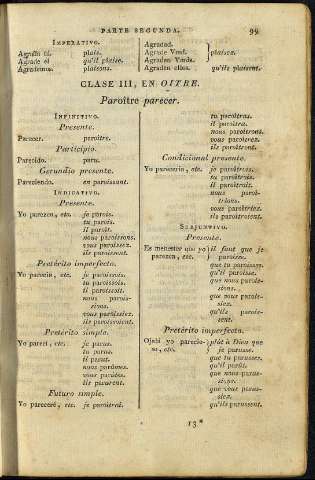 PARTE SEGUNDA. 99
IMPERATIVO.
Agradá tú. plais.
Agrade él qu'il plaise.
Agrademos. plaisons.
Agradad.
Agrade Vmd. plaisez.
Agraden Vmds.
Agraden ellos. qu'ils plaisent.
CLASE III, EN OITRE.
Paroître parecer.
INFINITIVO.
Presente.
Parecer. paroître.
Participio.
Parecido. paru.
Gerundio presente.
Pareciendo. en paroissant.
INDICATIVO.
Presente.
Yo parezco, etc. je parois.
tu parois.
il paroît.
nous paroissons.
vous paroissez.
ils paroissent.
Pretérito imperfecto.
Yo parecia, etc. je paroissois.
tu paroissois.
il paroissoit.
nous parois-
sions.
vous paroissiez.
ils paroissoient.
Pretérito simple.
Yo parecí, etc. je parus.
tu parus.
il parut.
nous parûmes.
vous parûtes.
ils parurent.
Futuro simple.
Yo pareceré, etc. je paroîtrai.
tu paroîtras.
il paroîtra.
nous paroîtrons.
vous paroîtrez.
ils paroîtront.
Condicional presente.
Yo pareceria, etc. je paroîtrois.
tu paroîtrois.
il paroîtroit.
nous paroî-
trions.
vous paroîtriez.
ils paroîtroient.
SUBJUNTIVO.
Presente.
Es menester que yo il faut que je
parezca, etc. paroisse.
que tu paroisses.
qu'il paroisse.
que nous parois-
sions.
que vous parois-
siez.
qu'ils parois-
sent.
Pretérito imperfecto.
Ojalá yo parecie- plût à Dieu que
se, etc. je parusse.
que tu parusses.
qu'il parût.
que nous parus-
sions.
que vous parus-
siez.
qu'ils parussent.
13*